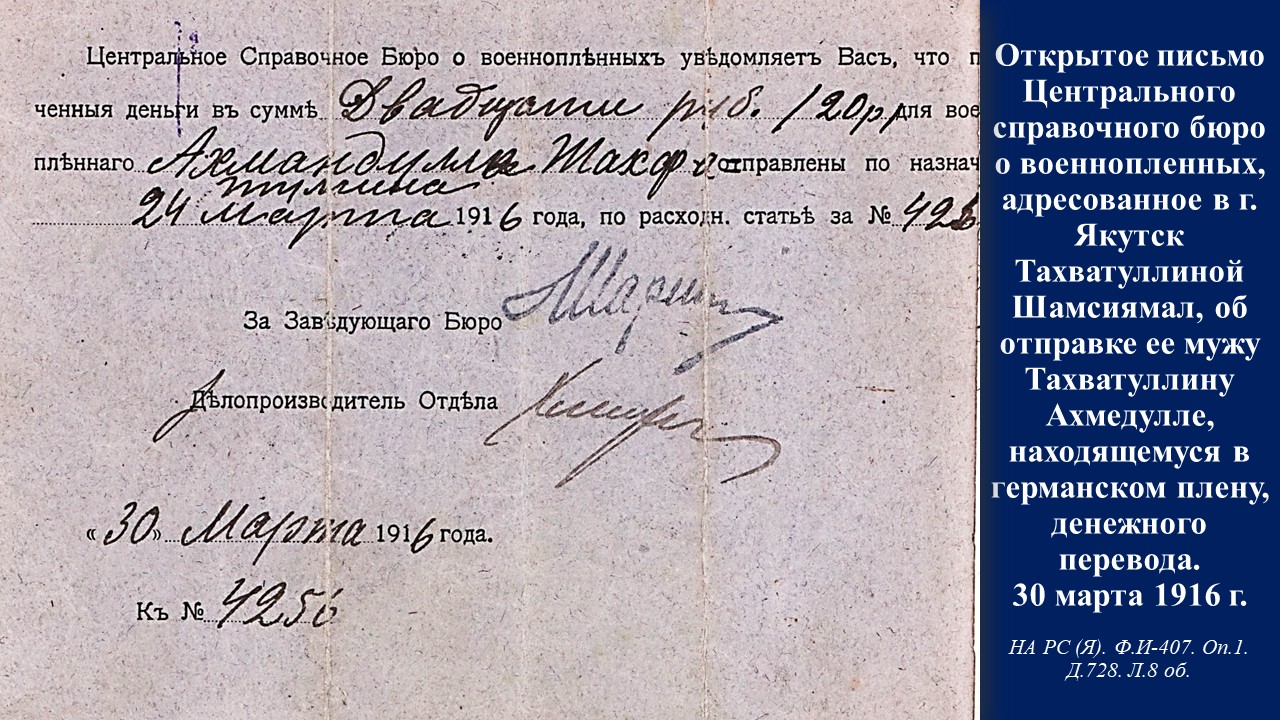 Центральное Справочное Бюро о военноплѣнныхъ увѣдомляетъ Васъ, что п
ченныя деньги въ суммѣ Двадцати руб. /20р/ для вое
плѣннаго Ахмандулла Тахфа- отправлены по назнач
туллина
24 Марта 1916 года, по расходн. статьѣ за № 425
За Завѣдующаго Бюро
Дѣлопроизводитель Отдѣла
«30» Марта 1916 года.
Къ № 4256
Открытое письмо
Центрального
справочного бюро
о военнопленных,
адресованное в г.
Якутск
Тахватуллиной
Шамсиямал, об
отправке ее мужу
Тахватуллину
Ахмедулле,
находящемуся в
германском плену,
денежного
перевода.
30 марта 1916 г.
НА РС (Я). Ф.И-407. Оп.1.
Д.728. Л.8 об.